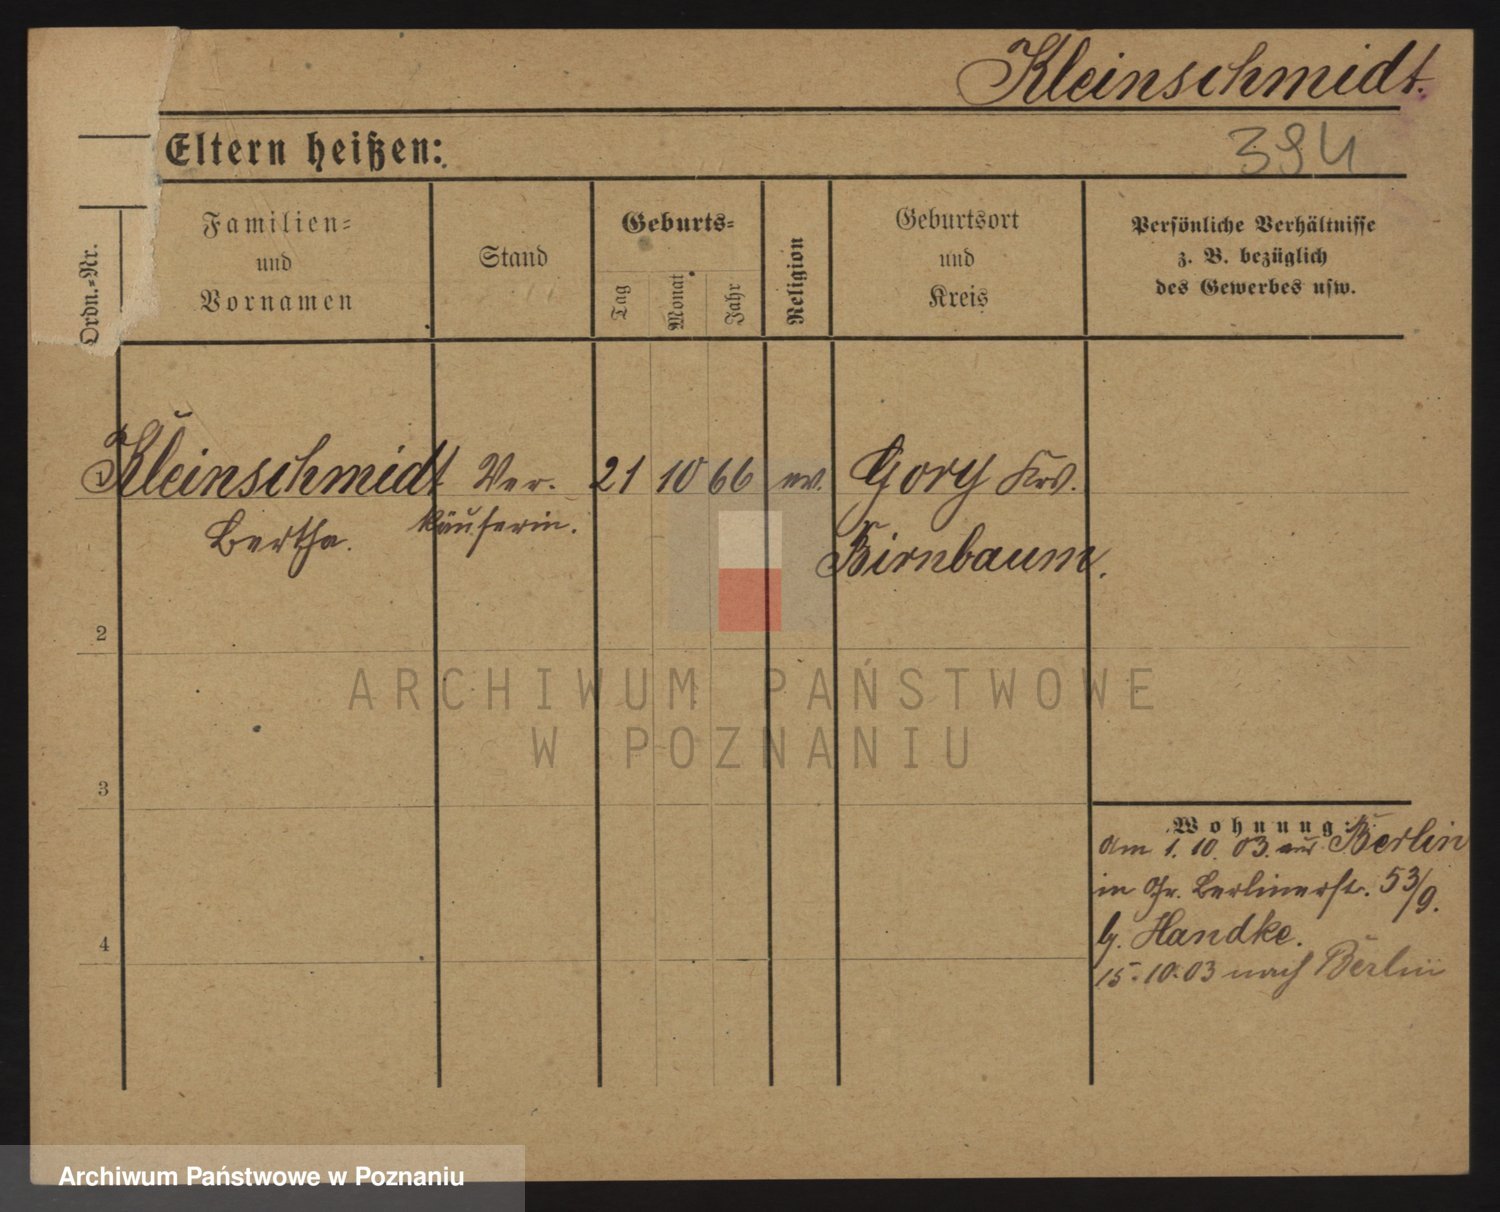 Kleinschmidt.
Eltern heißen:
394
Ordn.-Nr.
Familien-
und
Vornamen
Stand
Geburts-
Tag
Monat
Jahr
Religion
Geburtsort
und
Kreis
Persönliche Verhältnisse
z. B. bezüglich
des Gewerbes usw.
1 Kleinschmidt Ver- 21 10 66 ev. Gory Krs.
Bertha. käuferin. Birnbaum.
2
3
4
Wohnung:
am 1. 10. 03. aus Berlin
in Gr. Berlinerstr. 53/9.
b. Handke.
15.10.03 nach Berlin
ARCHIWUM PAŃSTWOWE
W POZNANIU
Archiwum Państwowe w Poznaniu